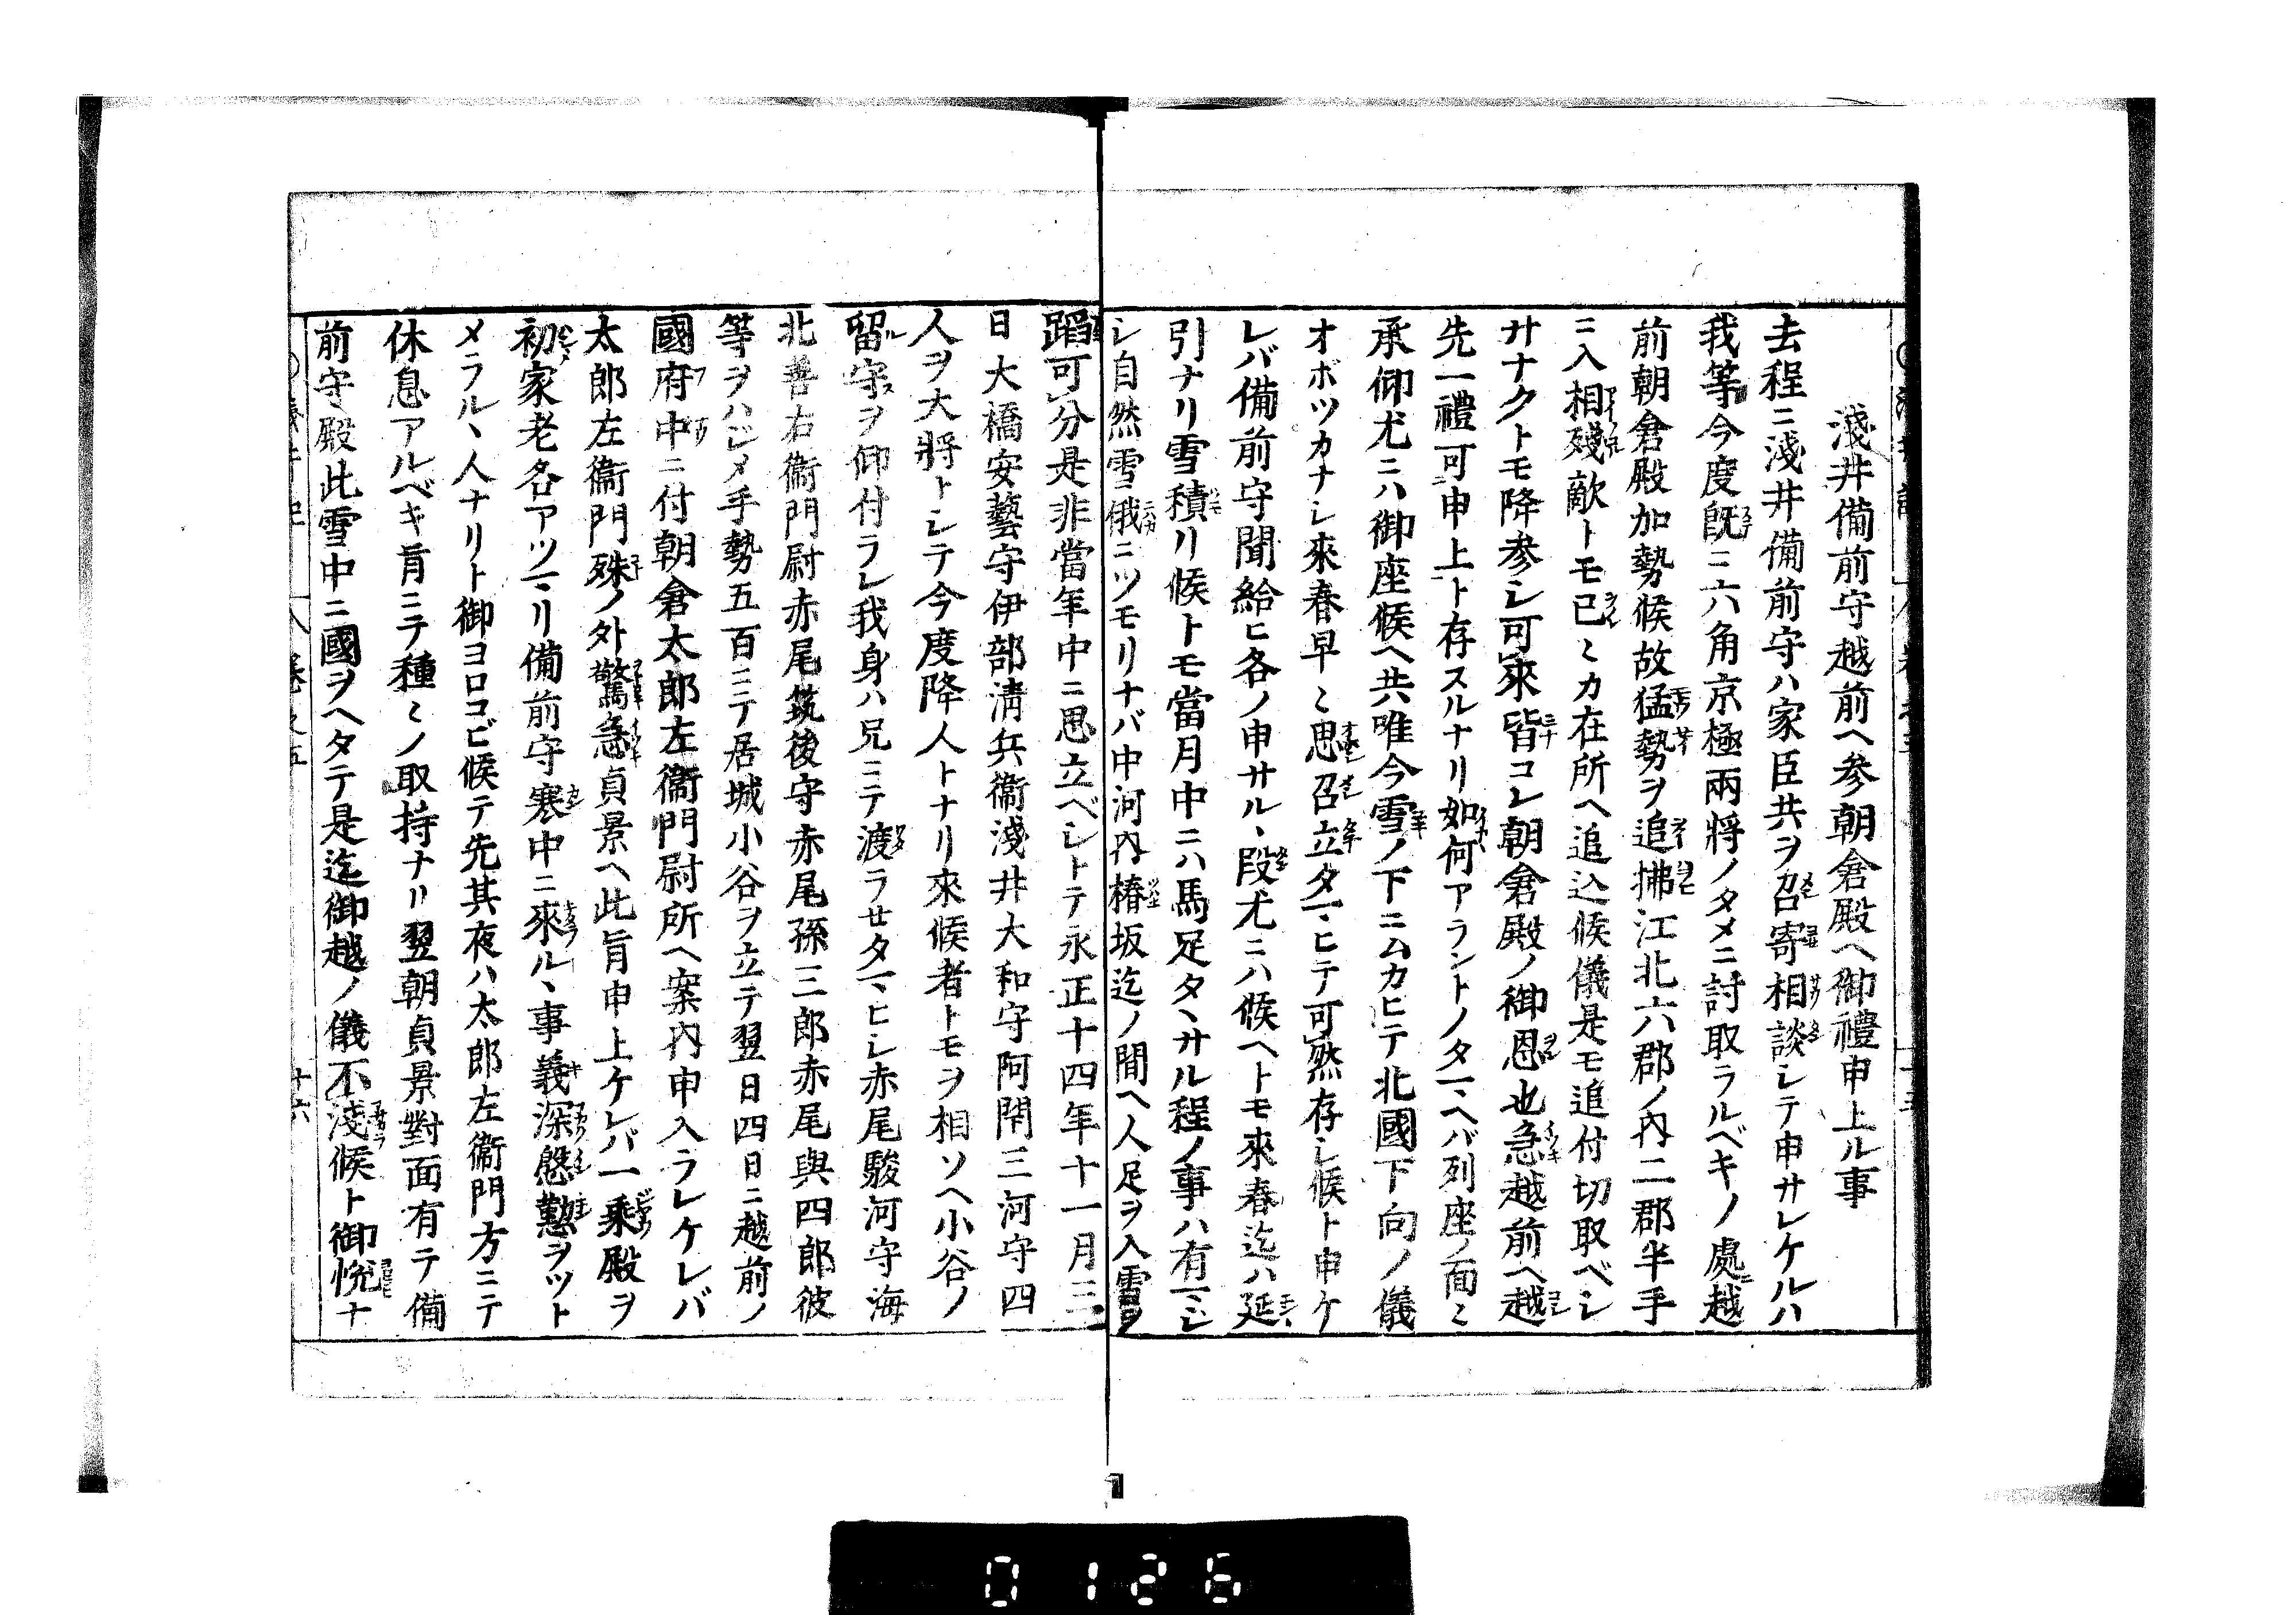 淺井備前守越前ヘ參朝倉殿ヘ御禮申上ル事
去程ニ淺井備前守ハ家臣共ヲ召寄相談シテ申サレケルハ
我等今度既ニ六角京極兩將ノタメニ討取ラルベキノ處越
前朝倉殿加勢候故猛勢ヲ追拂江北六郡ノ内二郡半手
ニ入相殘敵トモ已ミカ在所ヘ追込候儀是モ追付切取ベシ
サナクトモ降參シ可來皆コレ朝倉殿ノ御恩也急越前ヘ越
先一禮可申上ト存スルナリ如何アラントノタマヘバ列座ノ面々
承仰尤ニハ御座候ヘ共唯今雪ノ下ニムカヒテ北國下向ノ儀
オボツカナシ來春早々思召立タマヒテ可然存シ候ト申ケ
レバ備前守聞給ヒ各ノ申サルヽ段尤ニハ候ヘトモ來春迄ハ延
引ナリ雪積リ候トモ當月中ニハ馬足タヽサル程ノ事ハ有マシ
シ自然雪俄ニツモリナバ中河内椿坂迄ノ間ヘ人足ヲ入雪ヲ
蹈可分是非當年中ニ思立ベシトテ永正十四年十一月三
日大橋安藝守伊部淸兵衞淺井大和守阿閉三河守四
人ヲ大將トシテ今度降人トナリ來候者トモヲ相ソヘ小谷ノ
留守ヲ仰付ラレ我身ハ兄ニテ渡ラセタマヒシ赤尾駿河守海
北善右衞門尉赤尾筑後守赤尾孫三郎赤尾與四郎彼
等ヲハジメ手勢五百ニテ居城小谷ヲ立テ翌日四日ニ越前ノ
國府中ニ付朝倉太郎左衞門尉所ヘ案内申入ラレケレバ
太郎左衞門殊ノ外驚急貞景ヘ此旨申上ケレバ一乘殿ヲ
初家老各アツマリ備前守寒中ニ來ルヽ事義深慇懃ヲツト
メラルヽ人ナリト御ヨロコビ候テ先其夜ハ太郎左衞門方ニテ
休息アルベキ旨ニテ種々ノ取持ナリ翌朝貞景對面有テ備
前守殿此雪中ニ國ヲヘタテ是迄御越ノ儀不淺候ト御悅ナ
十六
0126